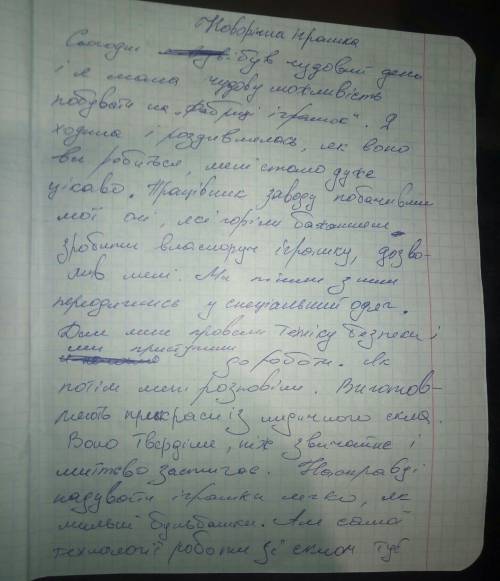 Новорічна іграшка
Сьогодні був чудовий день
і я мала чудову можливість
побувати на „Фабриці іграшок". Я
ходила і роздивлялась, як воно
все робиться, мені стало дуже
цікаво. Працівник заводу побачивши
мої очі, які горіли бажанням
зробити власноруч іграшку, дозво-
лив мені. Ми пішли з ним
переодягнись у спеціальний одяг.
Далі мені провели Техніку Безпеки і
ми приступили до роботи. Як
потім мені розповіли. Виготов-
ляють прикраси із медичного скла.
Воно Твердіше, ніж звичайне і
миттєво застигає. Насправді
надувати іграшки легко, як
мильні бульбашки. Але самої
технології роботи зі склом